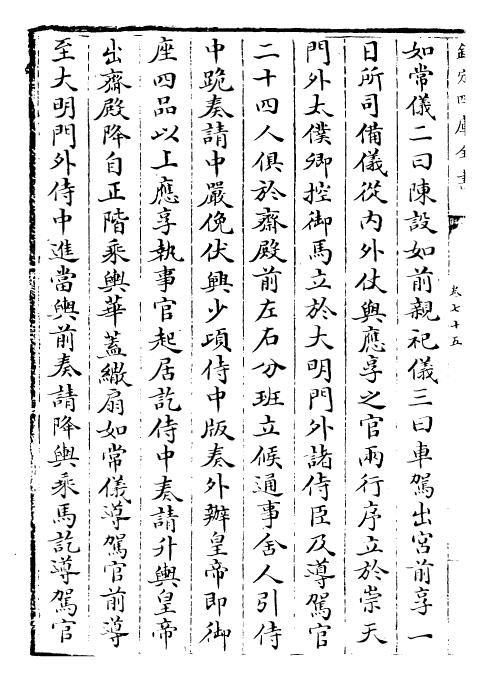 欽定四庫全書
卷七十五
如常儀二曰陳設如前親祀儀三曰車駕出宮前享一
日所司備儀從内外仗與應享之官兩行序立於崇天
門外太僕卿控御馬立於大明門外諸侍臣及導駕官
二十四人俱於齋殿前左右分班立候通事舍人引侍
中跪奏請中嚴俛伏興少頃侍中版奏外辦皇帝即御
座四品以上應享執事官起居訖侍中奏請升輿皇帝
出齋殿降自正階乘輿華蓋繖扇如常儀導駕官前導
至大明門外侍中進當輿前奏請降輿乘馬訖導駕官